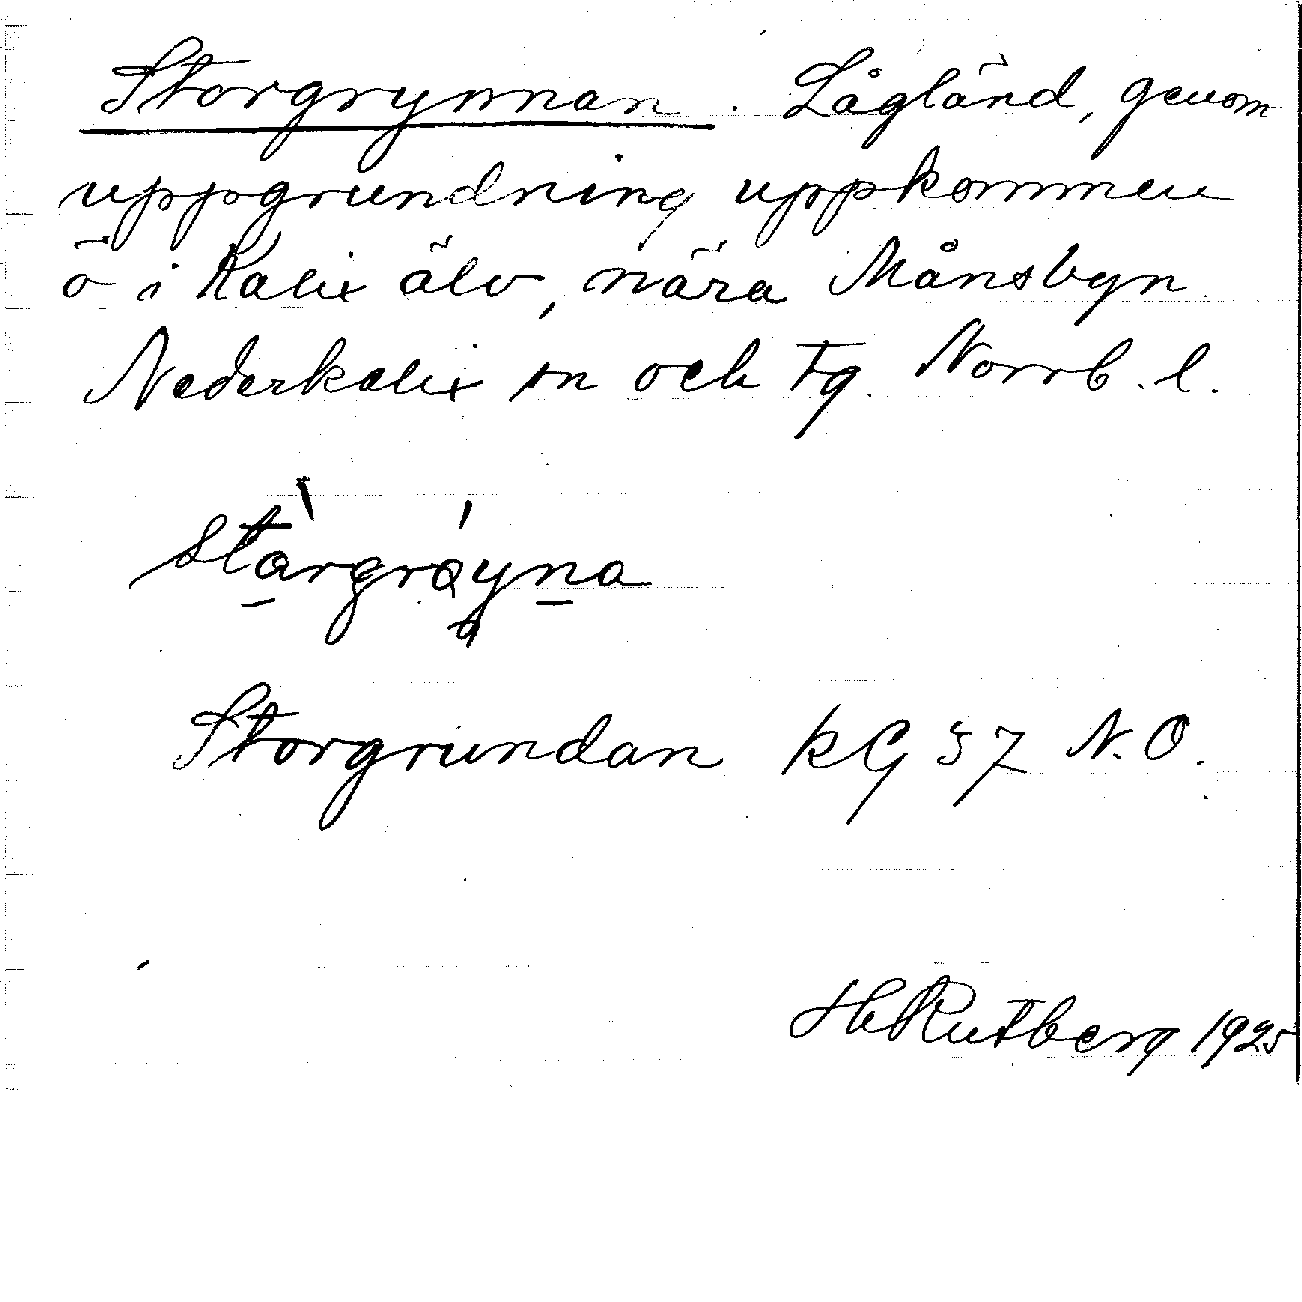 Storgrynnan. Lågländ, genom
uppgrundning uppkommen
ö i Kalix älv, nära Månsbyn
Nederkalix sn och tg. Norrb. l.
Storgrundan KG 57 N.O.
H Rutberg 1925